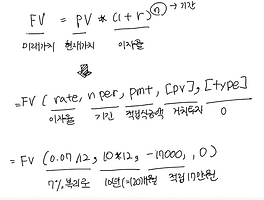 FV = PV * (1+r)ⁿ → 기간
미래가치 현재가치 이자율
=FV ( rate, nper, pmt, [pv], [type]
이자율 기간 적립식금액 거치투자 0
= FV (0.07/12, 10*12, -17000, , 0)
7% 복리로 10년 (=120개월 적립 17만원